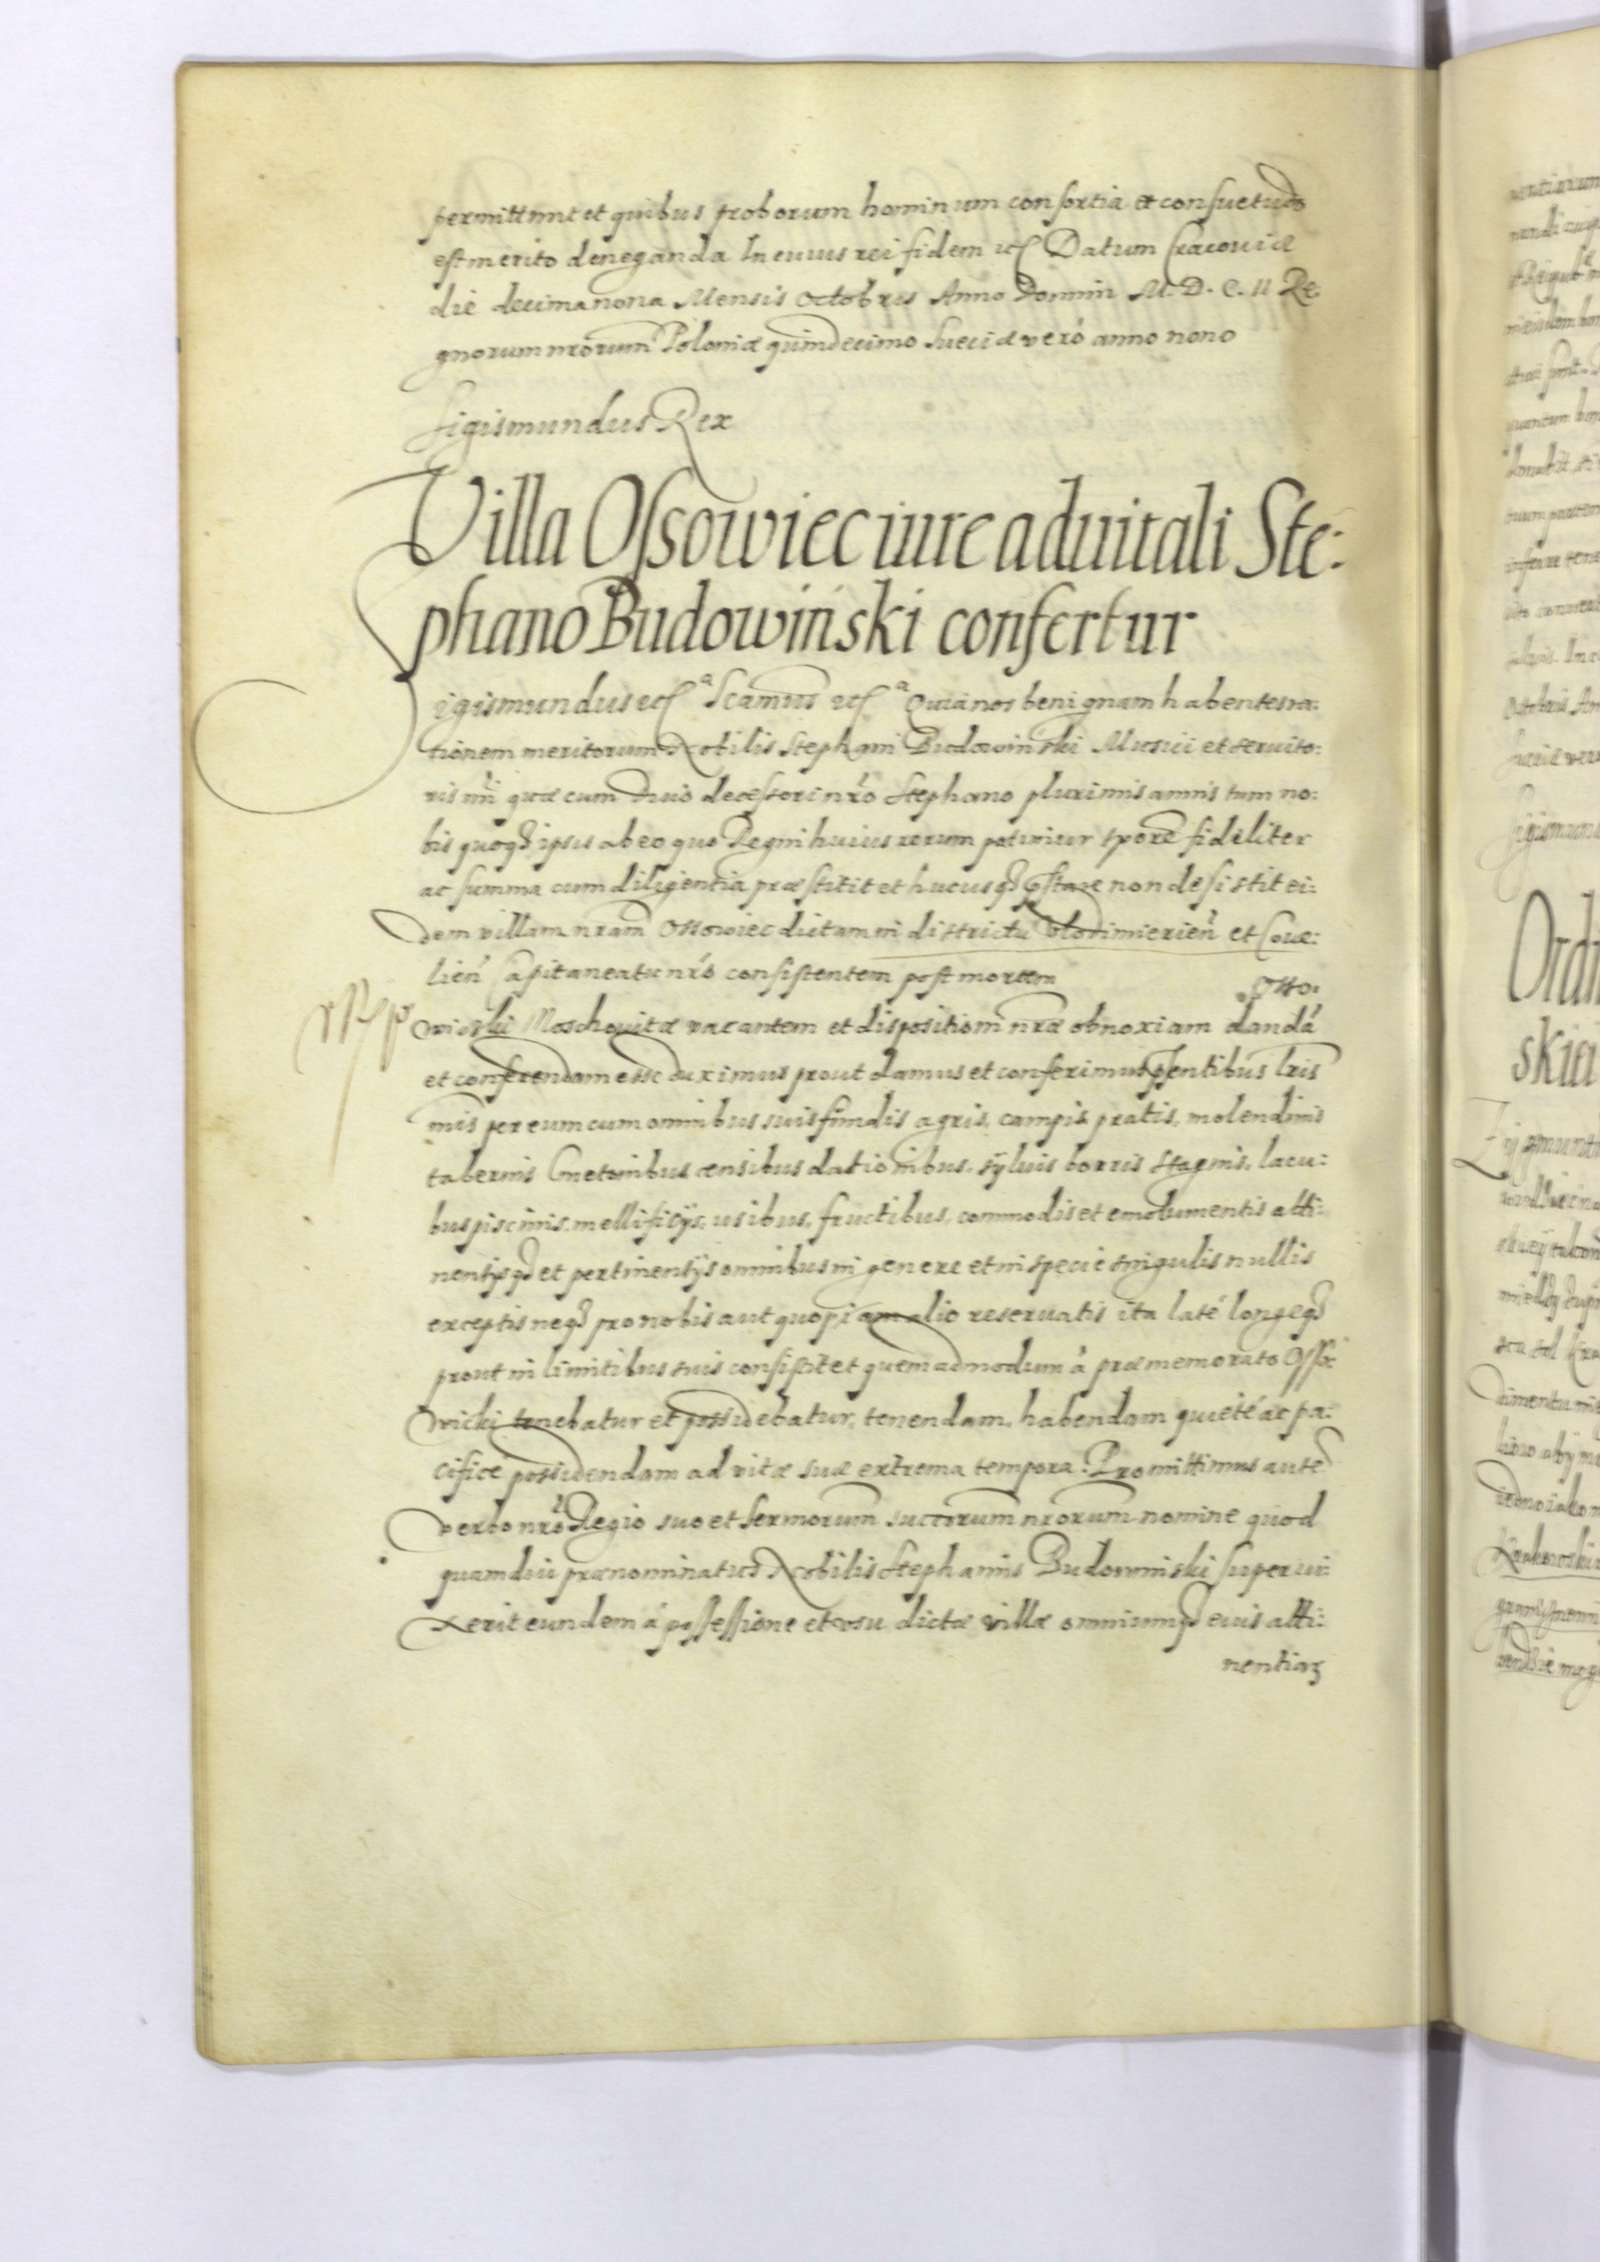 permittunt et quibus proborum hominum consortia et consuetudo
est merito deneganda In cuius rei fidem etc Datum Cracoviæ
die decimanona Mensis Octobris Anno Domini M. D. C. II Re:
gnorum nrorum Poloniæ quindecimo Sueciæ verò anno nono
Sigismundus Rex
Villa Ossowiec iure aduitali Ste:
phano Budowiński confertur
Sigismundus etc Scamus etc Quia nos benignam habentes ra:
tionem meritorum Nobilis Stephani Budowinski Musici et seruito:
ris nri quæ cum Diuo decessori nro Stephano plurimis annis tum no:
bis quoq ipsis ab eo quo Regni huius rerum potimur tpore fideliter
ac summa cum diligentia præstitit et hucusq pstare non desistit ei:
dem villam nram Ossowiec dictam in districtu Vlodimierien et Cove:
lien Capitaneatu nro consistentem post mortem Osso:
wicki Moschovitæ vacantem et dispositioni nræ obnoxiam dandá
et conferendam esse duximus prout damus et conferimus pntibus lris
nris per eum cum omnibus suis fundis agris, campis pratis, molendinis
tabernis Cmetonibus censibus dationibus, syluis borris stagnis, lacu:
bus piscinis, mellificijs, usibus, fructibus, commodis et emolumentis atti:
nentijsq et pertinentijs omnibus in genere et in specie singulis nullis
exceptis neq pro nobis aut quopiam alio reseruatis ita laté longeq
prout in limitibus suis consistit et quemadmodum á præmemorato Osso
wicki tenebatur et possidebatur, tenendam, habendam quieté ac pa:
cifice possidendam ad vitæ suæ extrema tempora. Promittimus aute
verbo nro Regio suo et sermorum succrorum nrorum nomine quod
quamdiu prænominatus Nobilis Stephanus Budowinski superui:
xerit eundem á possessione et vsu dictæ villæ omniumq eius atti:
nentiar